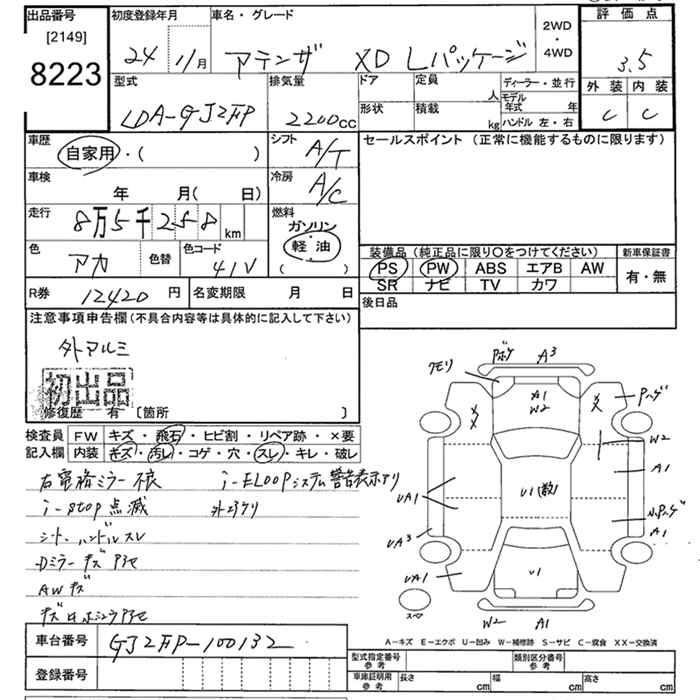 出品番号
[2149]
8223
初度登録年月
24 11月
車名・グレード
アテンザ XD Lパッケージ
2WD
・
4WD
評価点
3.5
外装 内装
C C
型式
LDA-GJ2FP
排気量
2200cc
ドア
形状
定員
人
積載
kg
ディーラー・並行
モデル
年式 年
ハンドル 左・右
車歴
自家用・( )
シフト
A/T
車検
年 月( 日)
冷房
A/C
走行
8万5千258km
燃料
ガソリン
軽油
( )
色
アカ
色替
色コード
41V
R券 12420円
名変期限 月 日
セールスポイント (正常に機能するものに限ります)
装備品 (純正品に限り〇をつけてください)
PS PW ABS エアB AW
SR ナビ TV カワ
新車保証書
有・無
後日品
注意事項申告欄(不具合内容等は具体的に記入して下さい)
外アルミ
初出品
修復歴 有 [箇所 ]
検査員
記入欄
FW キズ・飛石・ヒビ割・リペア跡・×要
内装 キズ・汚レ・コゲ・穴・スレ・キレ・破レ
右電格ミラー不良 i-ELOOPシステム警告表示アリ
i-stop点滅
シート、ハンドルスレ
Dミラーキズ
AWキズ
キズ
クモリ
Pボケ
A3
A1
W2
XX
XX
Pハゲ
W2
A1
UA1
U1(数)
A1
UA3
UA1
U1
スペア
W2 A1
A-キズ E-エクボ U-凹み W-補修跡 S-サビ C-腐食 XX-交換済
車台番号 GJ2FP-100132
登録番号
型式指定番号
参考
類別区分番号
参考
車庫証明用
参考
長さ cm
幅 cm
高さ cm